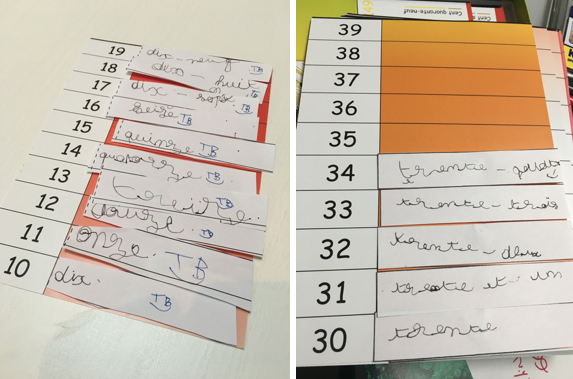 19 dix-neuf TB
18 dix-huit TB
17 dix-sept TB
16 seize TB
15 quinze TB
14 quatorze TB
13 treize TB
12 douze TB
11 onze. TB
10 dix. TB
49
Cent quarante-neuf
39
38
37
36
35
34 trente-
33 trente-trois
32 trente-deux
31 trente et un
30 trente